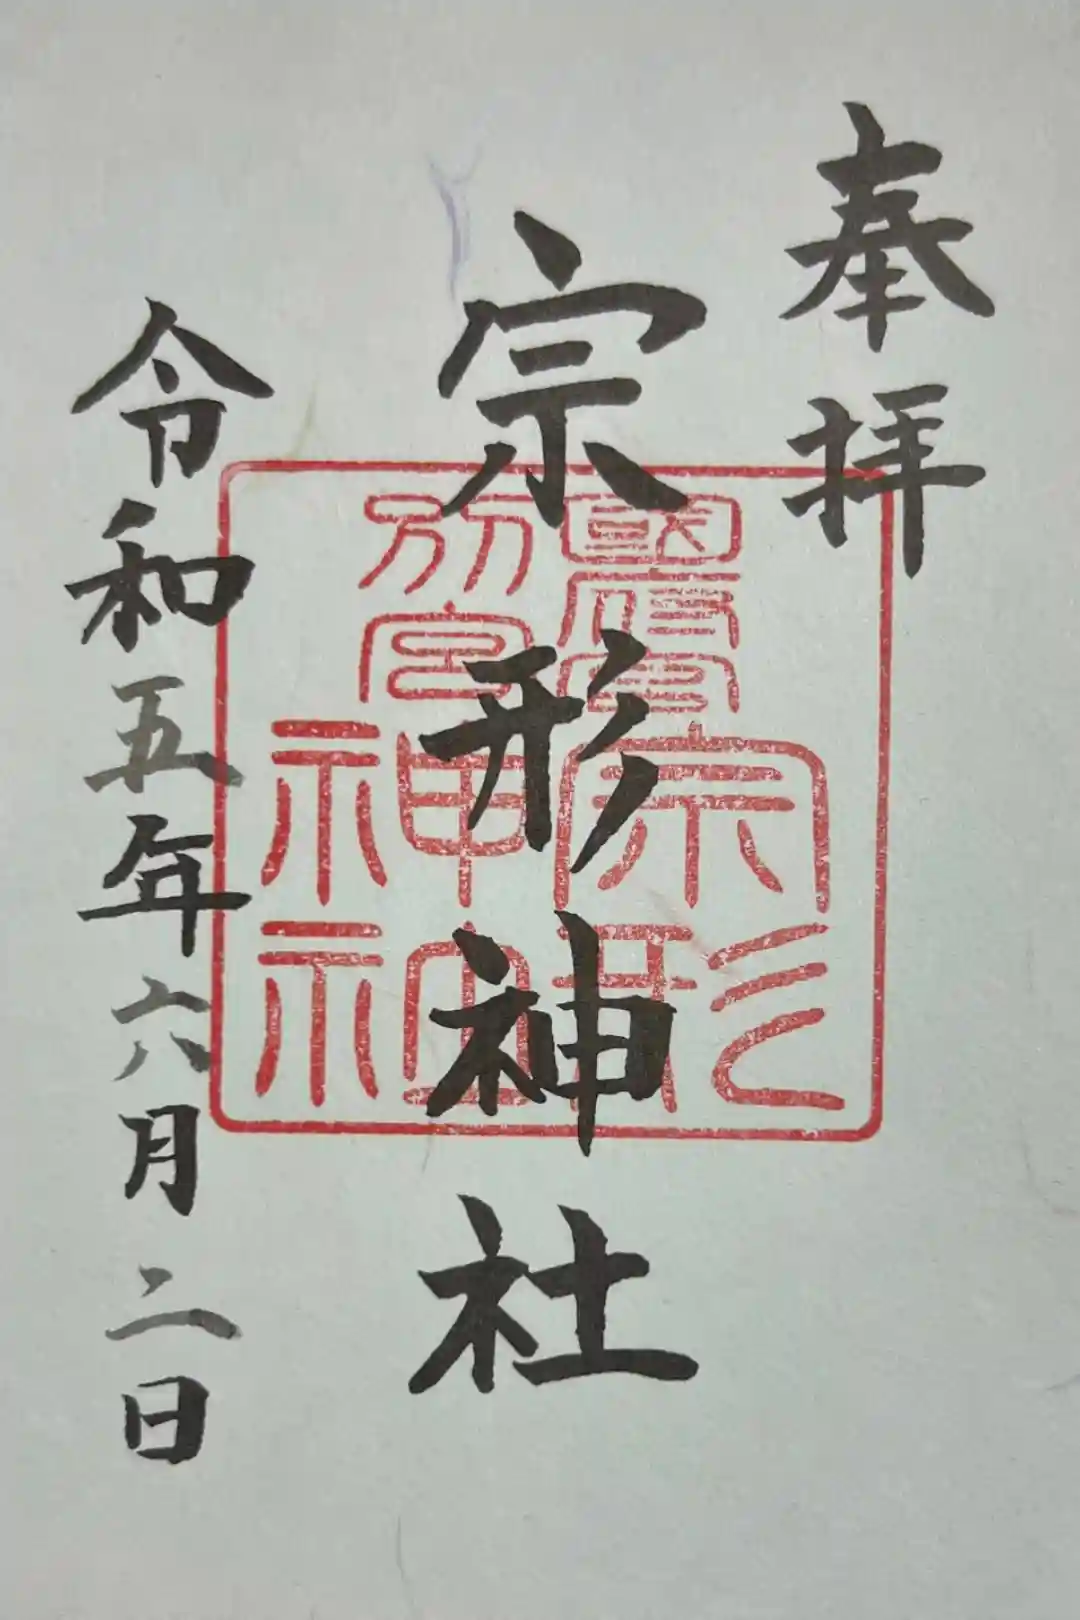 奉拝
宗形神社
令和五年六月二日
宗形
神社
別宮